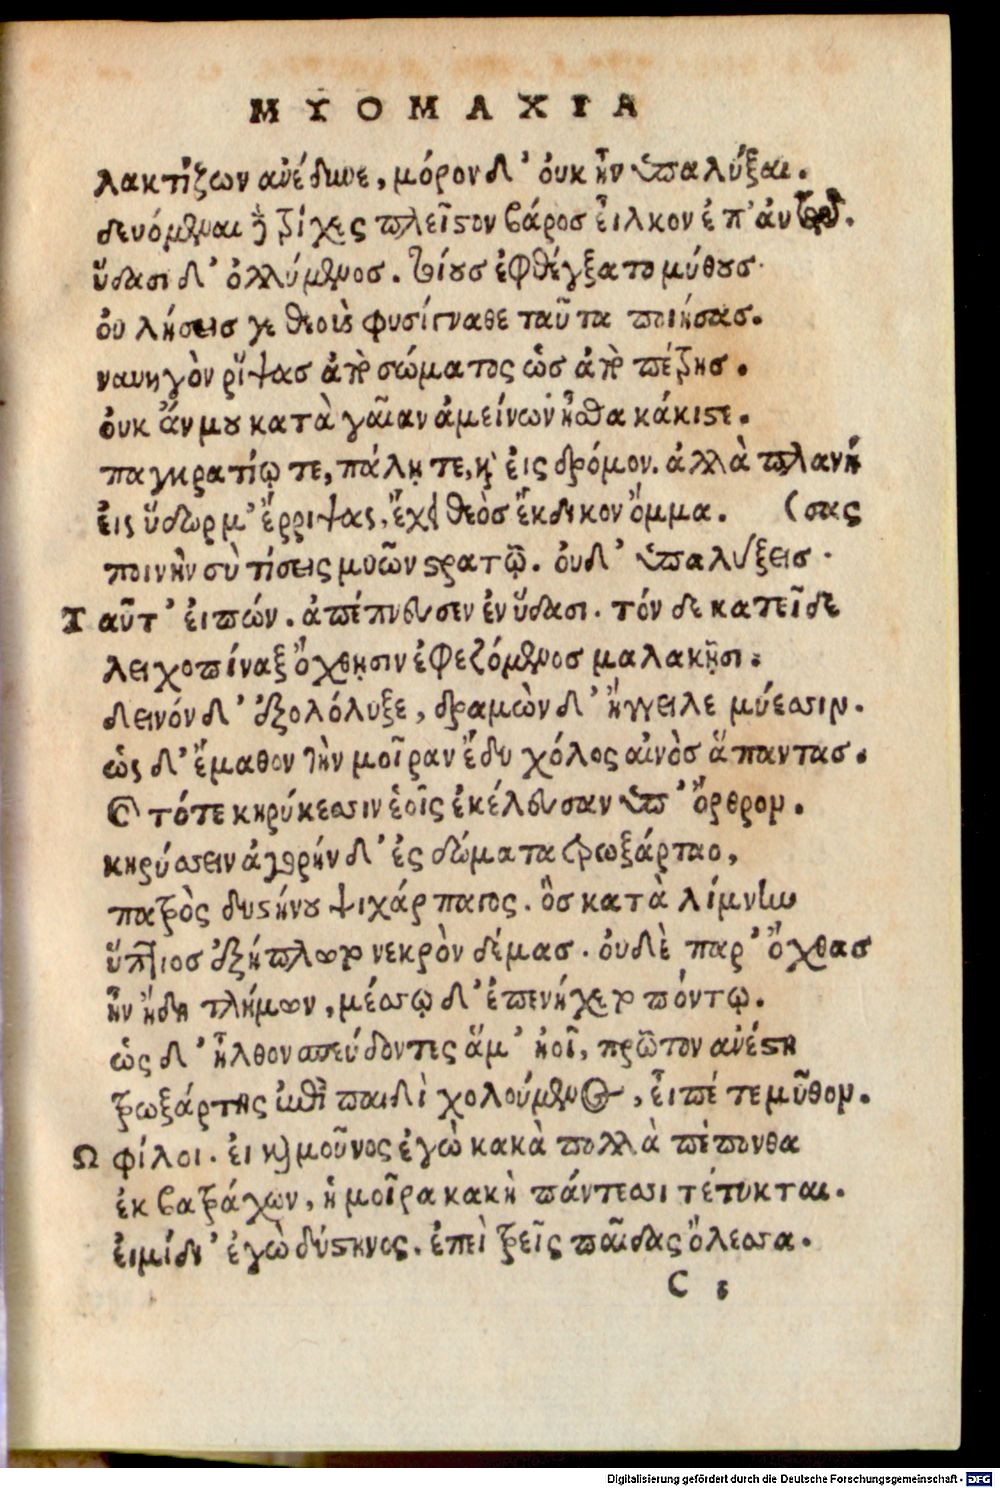 ΜΥΟΜΑΧΙΑ
λακτίζων ἀνέδυνε, μόρον δ' ὀυκ ἦν ὑπαλύξαι.
δευόμεναι ἢ τρίχες πλεῖστον βάρος εἷλκον ἐπ' ἀυτῷ.
ὕδασι δ' ὀλλύμενος. τοίους ἐφθέγξατο μύθους·
ὀυ λήσεις γε θεοὺς φυσίγναθε ταῦτα ποιήσας.
ναυηγὸν ῥίψας ἀπὸ σώματος ὡς ἀπὸ πέτρης.
ὀυκ ἄν μου κατὰ γαῖαν ἀμείνων ἦσθα κάκιστε.
παγκρατίῳ τε, πάλῃ τε, καὶ ἐις δρόμον. ἀλλὰ πλανή
ἐις ὕδωρ μ' ἔρριψας, ἔχει θεὸς ἔκδικον ὄμμα. (σας
ποινὴν σὺ τίσεις μυῶν στρατῷ. ὀυδ' ὑπαλύξεις·
Ταῦτ' ἐιπών. ἀπέπνευσεν ἐν ὕδασι. τόν δε κατεῖδε
λειχοπίναξ ὄχθῃσιν ἐφεζόμενος μαλακῇσι.
δεινὸν δ' ἐξολόλυξε, δραμὼν δ' ἤγγειλε μύεσσιν.
ὡς δ' ἔμαθον τὴν μοῖραν ἔδυ χόλος αἰνὸς ἅπαντας.
Καὶ τότε κηρύκεσσιν ἑοῖς ἐκέλευσαν ὑπ' ὄρθρον.
κηρύσσειν ἀγορήν δ' ἐς δώματα τρωξάρταο,
πατρὸς δυστήνου ψιχάρπαγος. ὃς κατὰ λίμνην
ὕπτιος ἐξήπλωτο νεκρὸν δέμας. ὀυδὲ παρ' ὄχθας
ἦν ἤδη τλήμων, μέσσῳ δ' ἐπενήχετο πόντῳ.
ὡς δ' ἦλθον σπεύδοντες ἅμ' ἠοῖ, πρῶτον ἀνέστη
τρωξάρτης ἐπὶ παιδὶ χολούμενος, εἶπέ τε μῦθον.
Ω φίλοι. ἐι καὶ μοῦνος ἐγὼ κακὰ πολλὰ πέπονθα
ἐκ βατράχων, ἡ μοῖρα κακὴ πάντεσσι τέτυκται.
ἐιμί δ' ἐγὼ δύστηνος. ἐπεὶ τρεῖς παῖδας ὄλεσσα.
C
Digitalisierung gefördert durch die Deutsche Forschungsgemeinschaft - DFG